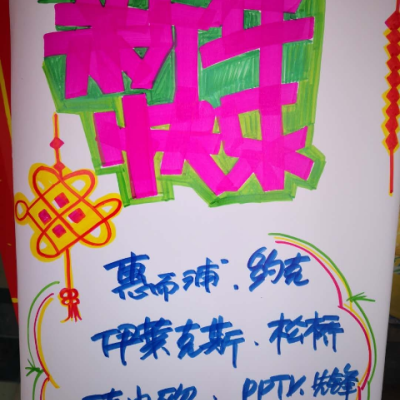 新年
快乐
惠而浦、约克
伊莱克斯、松桥
PPTV、先锋